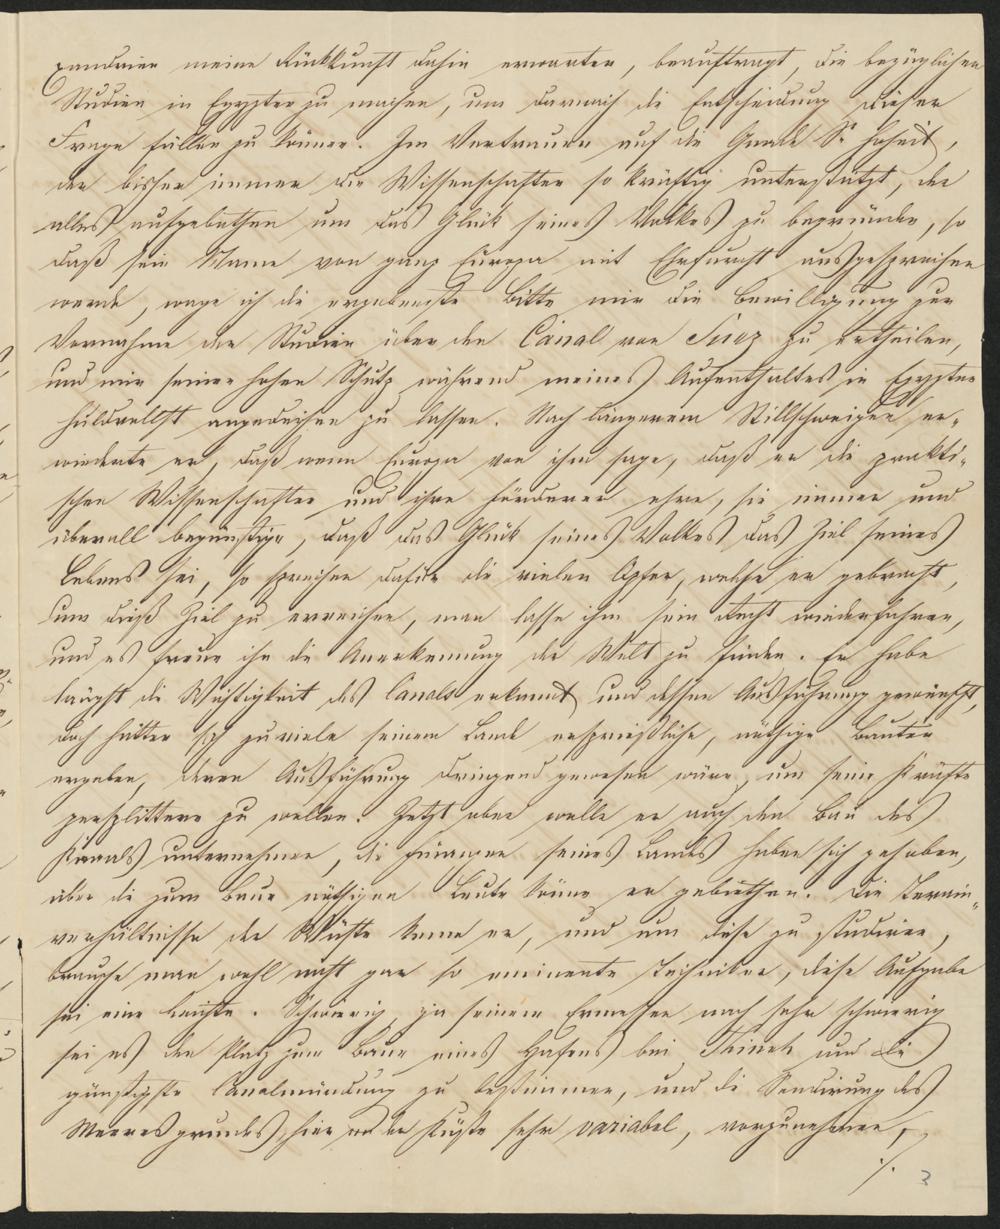 xandrien meine Rückkunft dahin erwarten, beauftragt, die bezüglichen
Studien in Egypten zu machen, um darnach die Entscheidung dieser
Frage fällen zu können. Im Vertrauen auf die Gnade Sr Hoheit,
der bisher immer die Wissenschaften so kräftig unterstützt, der
alles aufgebothen um das Glück seines Volkes zu begründen, so
daß sein Name von ganz Europa mit Ehrfurcht ausgesprochen
werde, wage ich die ergebenste Bitte mir die Bewilligung zur
Vornahme der Studien über den Canal von Suez zu ertheilen,
und mir seinen hohen Schutz während meines Aufenthaltes in Egypten
huldvollst angedeihen zu lassen. Nach längerem Stillschweigen er-
wiederte er, daß wenn Europa von ihm sage, daß er die prakti-
schen Wissenschaften und ihre Förderer ehre, sie immer und
überall begünstige, daß das Glück seines Volkes das Ziel seines
Lebens sei, so sprechen dafür die vielen Opfer, welche er gebracht,
um dieß Ziel zu erreichen, man lasse ihm sein Recht wiederfahren,
und es freue ihn die Anerkennung der Welt zu finden. Er habe
längst die Wichtigkeit des Canals erkannt und dessen Ausführung gewünscht,
doch hätten sich zu viele seinem Lande ersprießliche, nöthige Bauten
ergeben, deren Ausführung dringend gewesen wäre, um seine Kräfte
zersplittern zu wollen. Jetzt aber wolle er auch den Bau des
Kanals unternehmen, die Finanzen seines Landes haben sich gehoben,
über die zum Baue nöthigen Leute könne er gebiethen. Die Terrain-
verhältnisse der Wüste kenne er, und um diese zu studieren,
brauche man wohl nicht gar so eminente Techniker, diese Aufgabe
sei eine leichte. Schwierig, ja seinem Ermessen nach sehr schwierig
sei es den Platz zum Baue eines Hafens bei Tineh und die
günstigste Canalmündung zu bestimmen, und die Sondirung des
Meeresgrundes, hier an der Küste sehr variabel, vorzunehmen,
./.
3